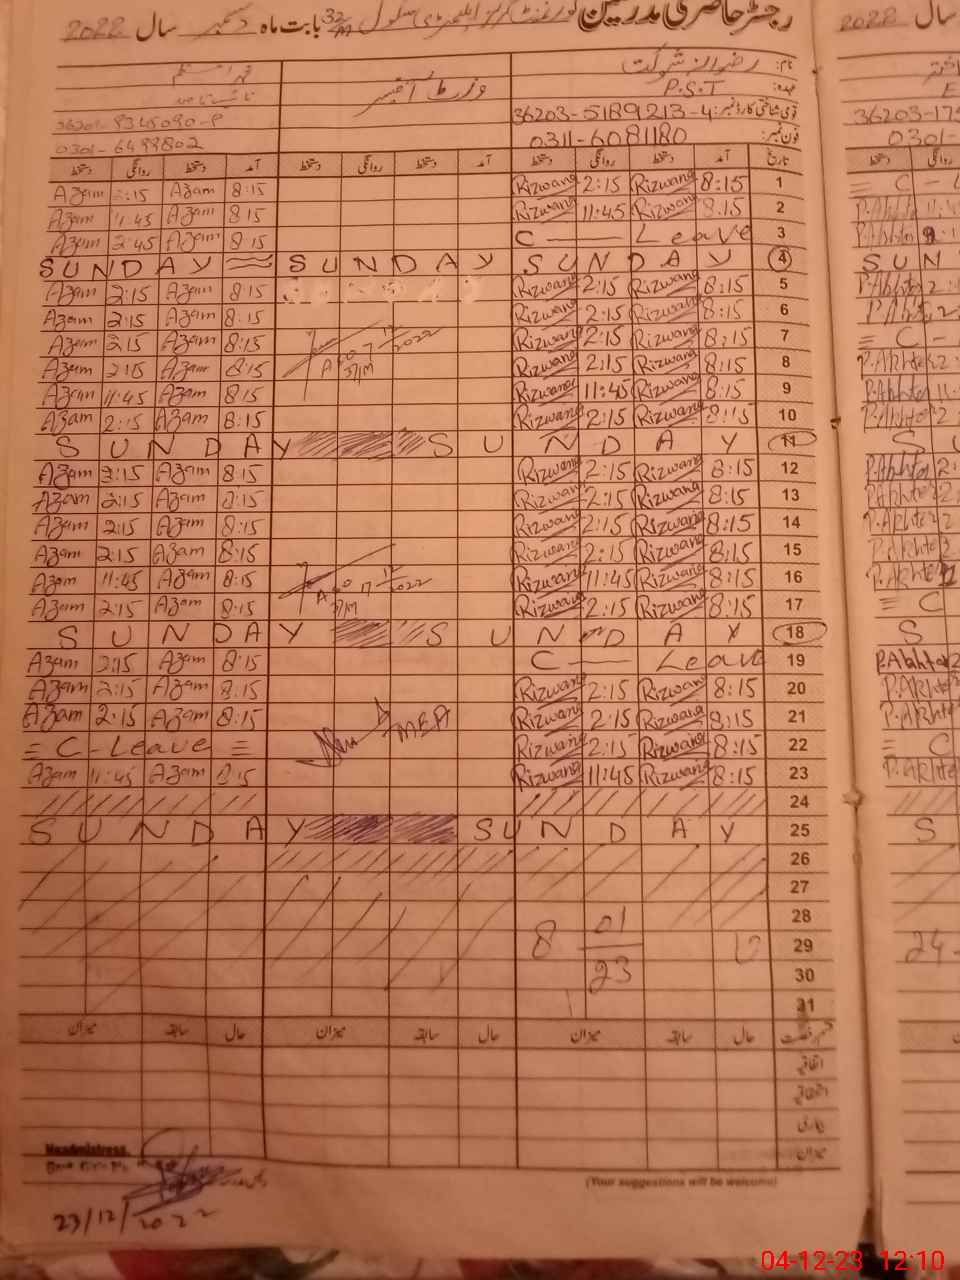 رجسٹر حاضری مدرسین گورنمنٹ گرلز ایلیمنٹری سکول 32/M بابت ماہ دسمبر سال 2022
سال 2022
نام: رضوانہ شوکت
عہدہ: P.S.T وزٹ آفیسر
قومی شناختی کارڈ نمبر: 36203-5189213-4
36203-175
فون نمبر: 0311-6081180 0301-6499802
0301-
تاریخ آمد دستخط روانگی دستخط آمد دستخط روانگی دستخط آمد دستخط روانگی دستخط
Azam 2:15 Azam 8:15 Rizwana 2:15 Rizwana 8:15 1 = C - L
Azam 11:45 Azam 8:15 Rizwana 11:45 Rizwana 8:15 2 P.Akhtar 11:4
Azam 2:45 Azam 8:15 C — Leave 3 P.Akhtar
SUNDAY SUNDAY SUNDAY 4 SUN
Azam 2:15 Azam 8:15 Rizwana 2:15 Rizwana 8:15 5 P.Akhtar 2:
Azam 2:15 Azam 8:15 Rizwana 2:15 Rizwana 8:15 6
Azam 2:15 Azam 8:15 12/2022 Rizwana 2:15 Rizwana 8:15 7 = C -
Azam 2:15 Azam 8:15 37/M Rizwana 2:15 Rizwana 8:15 8 P.Akhtar 2:
Azam 11:45 Azam 8:15 Rizwana 11:45 Rizwana 8:15 9 P.Akhtar 11:
Azam 2:15 Azam 8:15 Rizwana 2:15 Rizwana 8:15 10 P.Akhtar 2
SUNDAY SUNDAY 11 S U
Azam 2:15 Azam 8:15 Rizwana 2:15 Rizwana 8:15 12 P.Akhtar 2:
Azam 2:15 Azam 8:15 Rizwana 2:15 Rizwana 8:15 13 P.Akhter 2
Azam 2:15 Azam 8:15 Rizwana 2:15 Rizwana 8:15 14 P.Akhter 2
Azam 2:15 Azam 8:15 Rizwana 2:15 Rizwana 8:15 15 P.Akhter 2
Azam 11:45 Azam 8:15 17 12/2022 Rizwana 11:45 Rizwana 8:15 16 P.Akhter
Azam 2:15 Azam 8:15 37/M Rizwana 2:15 Rizwana 8:15 17 = C
SUNDAY SUNDAY 18 S
Azam 2:15 Azam 8:15 C — Leave 19 P.Akhter 2
Azam 2:15 Azam 8:15 Rizwana 2:15 Rizwana 8:15 20 P.Akhter
Azam 2:15 Azam 8:15 MEA Rizwana 2:15 Rizwana 8:15 21 P.Akhter
= C - Leave = Rizwana 2:15 Rizwana 8:15 22 = C
Azam 11:45 Azam 8:15 Rizwana 11:45 Rizwana 8:15 23 P.Akhter
24
SUNDAY SUNDAY 25 S
26
27
28
8 01/23 29 24-
30
31
حال سابقہ میزان حال سابقہ میزان حال سابقہ میزان
اتفاقیہ
میزان
Headmistress
(Your suggestions will be welcome)
23/12/2022
04-12-23 12:10